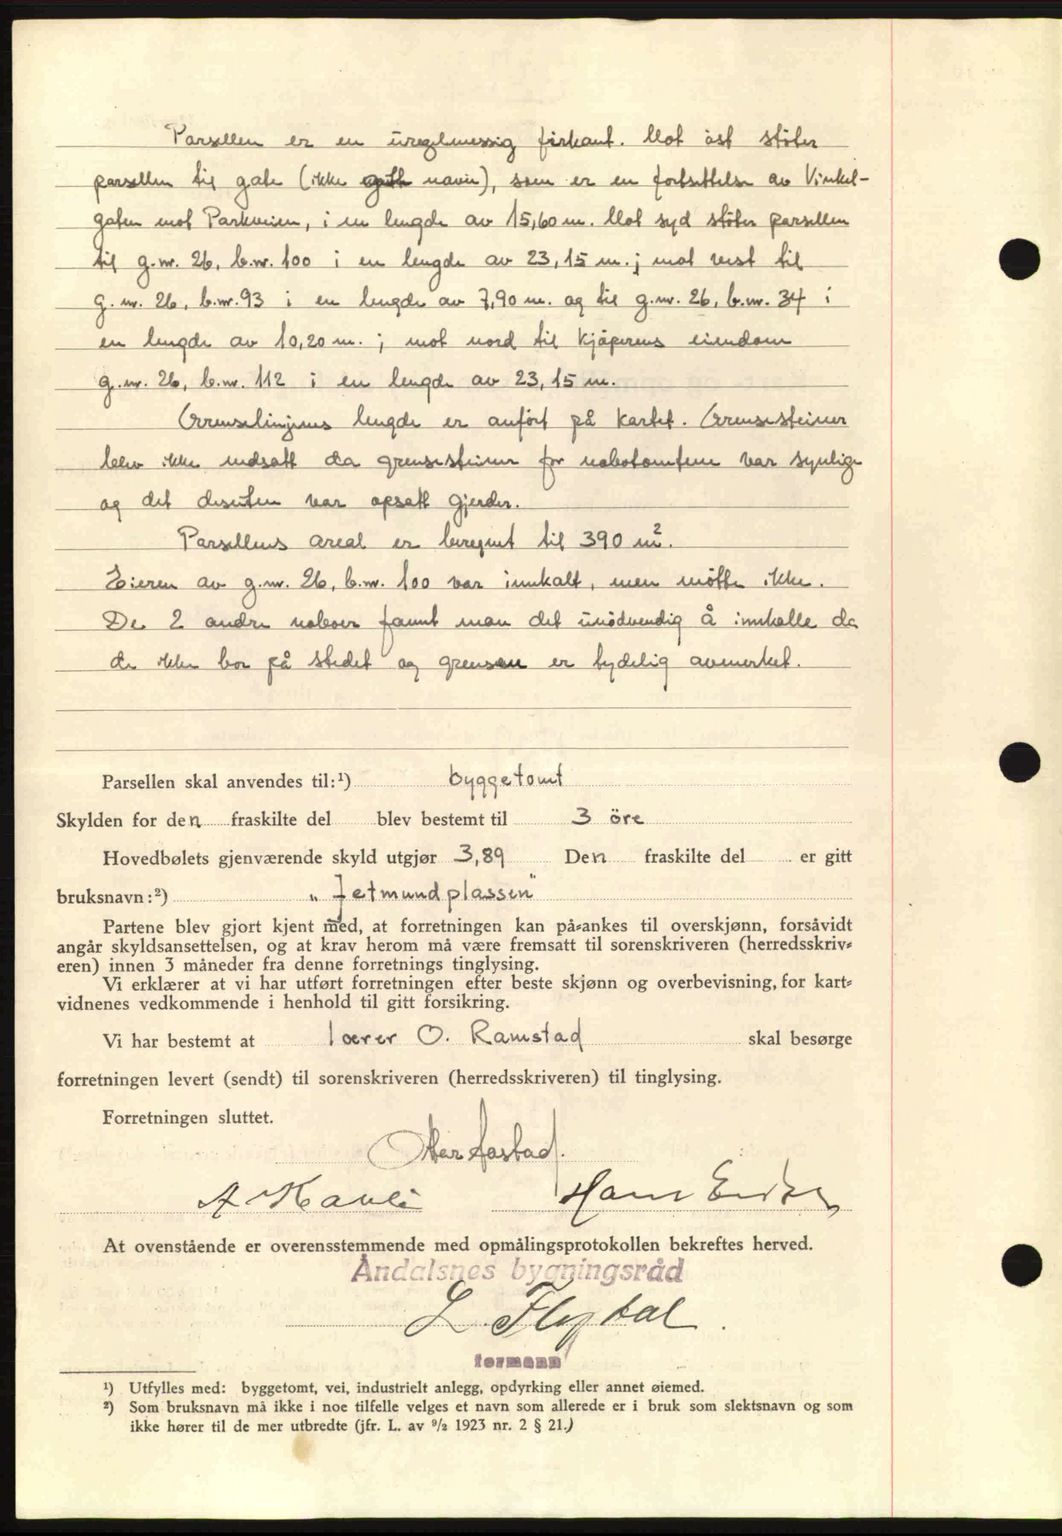 Parsellen er en uregelmessig firkant. Mot øst støter
parsellen til gate (ikke navn), som er en fortsettelse av Vinkel-
gaten mot Parkveien, i en lengde av 15,60 m. Mot syd støter parsellen
til g.nr. 26, b.nr. 100 i en lengde av 23,15 m.; mot vest til
g.nr. 26, b.nr. 93 i en lengde av 7,90 m. og til g.nr. 26, b.nr. 34 i
en lengde av 10,20 m.; mot nord til kjøperens eiendom
g.nr. 26, b.nr. 112 i en lengde av 23,15 m.
Grenselinjens lengde er anført på kartet. Grensesteiner
blev ikke nedsatt da grensesteiner for nabotomtene var synlige
og det desuten var opsatt gjerder.
Parsellens areal er beregnet til 390 m².
Eieren av g.nr. 26, b.nr. 100 var innkalt, men møtte ikke.
De 2 andre naboer fannt man det unødvendig å innkalle da
de ikke bor på stedet og grensen er tydelig avmerket.
Parsellen skal anvendes til:¹) byggetomt
Skylden for den fraskilte del blev bestemt til 3 öre
Hovedbølets gjenværende skyld utgjør 3,89 Den fraskilte del er gitt
bruksnavn:²) „Jetmundplassen"
Partene blev gjort kjent med, at forretningen kan på-ankes til overskjønn, forsåvidt
angår skyldsansettelsen, og at krav herom må være fremsatt til sorenskriveren (herredsskriv-
eren) innen 3 måneder fra denne forretnings tinglysing.
Vi erklærer at vi har utført forretningen efter beste skjønn og overbevisning, for kart-
vidnenes vedkommende i henhold til gitt forsikring.
Vi har bestemt at lærer O. Ramstad skal besørge
forretningen levert (sendt) til sorenskriveren (herredsskriveren) til tinglysing.
Forretningen sluttet.
A Kavli Hans
At ovenstående er overensstemmende med opmålingsprotokollen bekreftes herved.
Åndalsnes bygningsråd
L. Flydal.
formann
¹) Utfylles med: byggetomt, vei, industrielt anlegg, opdyrking eller annet øiemed.
²) Som bruksnavn må ikke i noe tilfelle velges et navn som allerede er i bruk som slektsnavn og som
ikke hører til de mer utbredte (jfr. L. av ⁹/₂ 1923 nr. 2 § 21.)